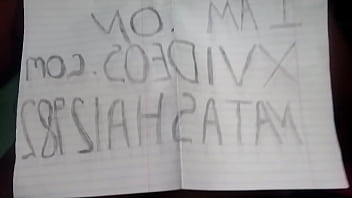 I AM .ON
XVIDEOS.COM
NATASHA12982